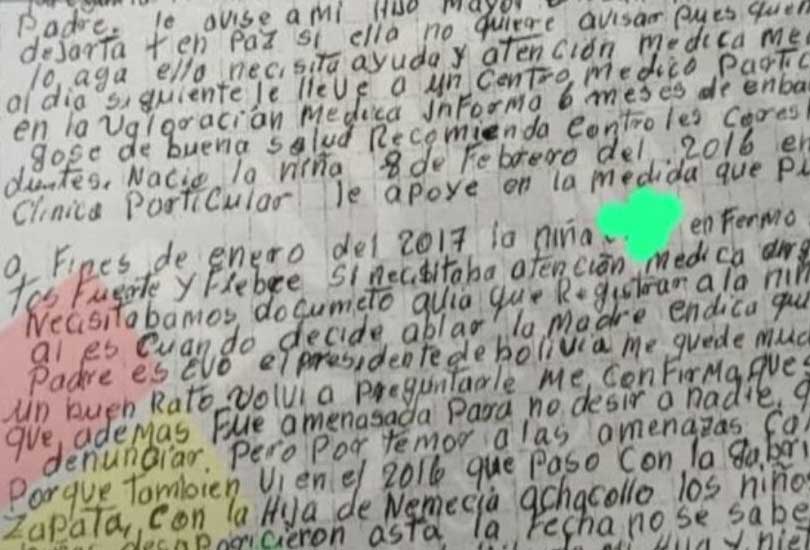 Padre. le avise a mi Hijo Mayor
dejarta t en Paz si ella no quiere avisar pues que
lo aga ello necisita ayuda y atención medica me
al dia siguiente le lleve a un centro medico Partic
en la valoración Medica informa 6 meses de enba
gose de buena salud Recomienda controles Cores
duntes. Nacio la niña 8 de Febrero del 2016 en
Clinica Particular le apoye en la medida que pu
a Fines de enero del 2017 la niña enFermo
tos Fuerte y Fiebre si necisitaba atención medica
Necisitabamos documeto auia que Registrar a la niñ
ai es cuando decide ablar la Madre endica qu
Padre es EVO el presidente de bolivia me quede muc
un buen Rato volvi a preguntarle me confirma que
que ademas Fue amenasada para no desir a nadie.
denunciar. Pero por temor a las amenazas
Porque Tambien vi en el 2016 que Paso con la gabr
Zapata, con la Hija de Nemecia achacollo los niño
desaparicieron asta la Fecha no se sabe